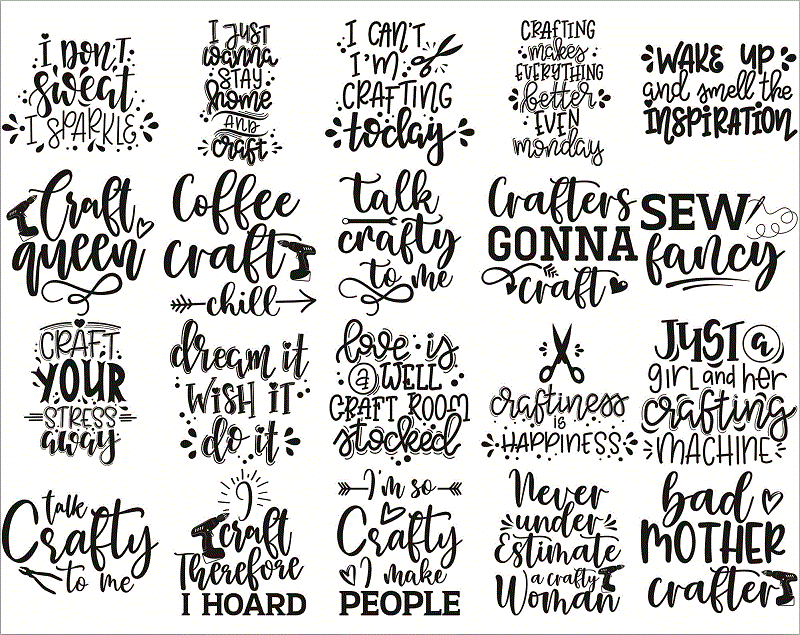 I DON'T
sweat
I SPARKLE
I JUST
wanna
STAY
home
AND
craft
I CAN'T
I'M
CRAFTING
today
CRAFTING
makes
EVERYTHING
better
EVEN
monday
WAKE UP
and smell the
INSPIRATION
Craft
queen
Coffee
craft
chill
talk
crafty
to me
Crafters
GONNA
craft
SEW
fancy
CRAFT
YOUR
STRESS
away
dream it
WISH IT
do it
love is
a WELL
CRAFT ROOM
stocked
craftiness
IS
HAPPINESS
JUST a
girl and her
crafting
MACHINE
talk
Crafty
to me
I
craft
Therefore
I HOARD
I'm so
Crafty
I make
PEOPLE
Never
under
Estimate
a crafty
Woman
bad
MOTHER
crafter